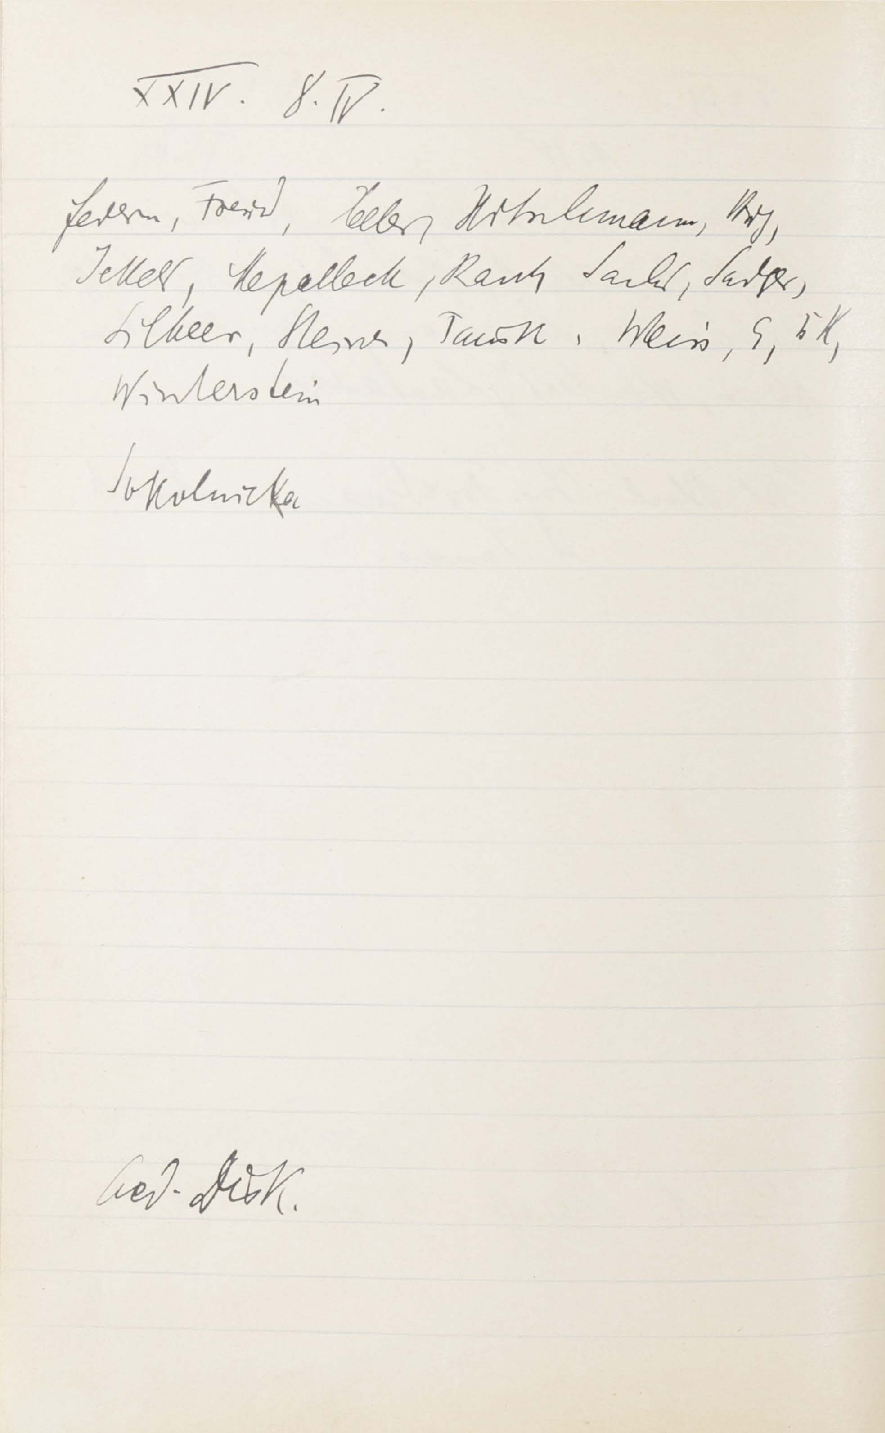 XXIV. 8. IV.
Federn, Freud, Heller, Hitschmann, Hug,
Jekels, Nepalleck, Rank, Sachs, Sadger,
Silberer, Steiner, Tausk, Weiss,
Winterstein
Sokolnicka
Disk.